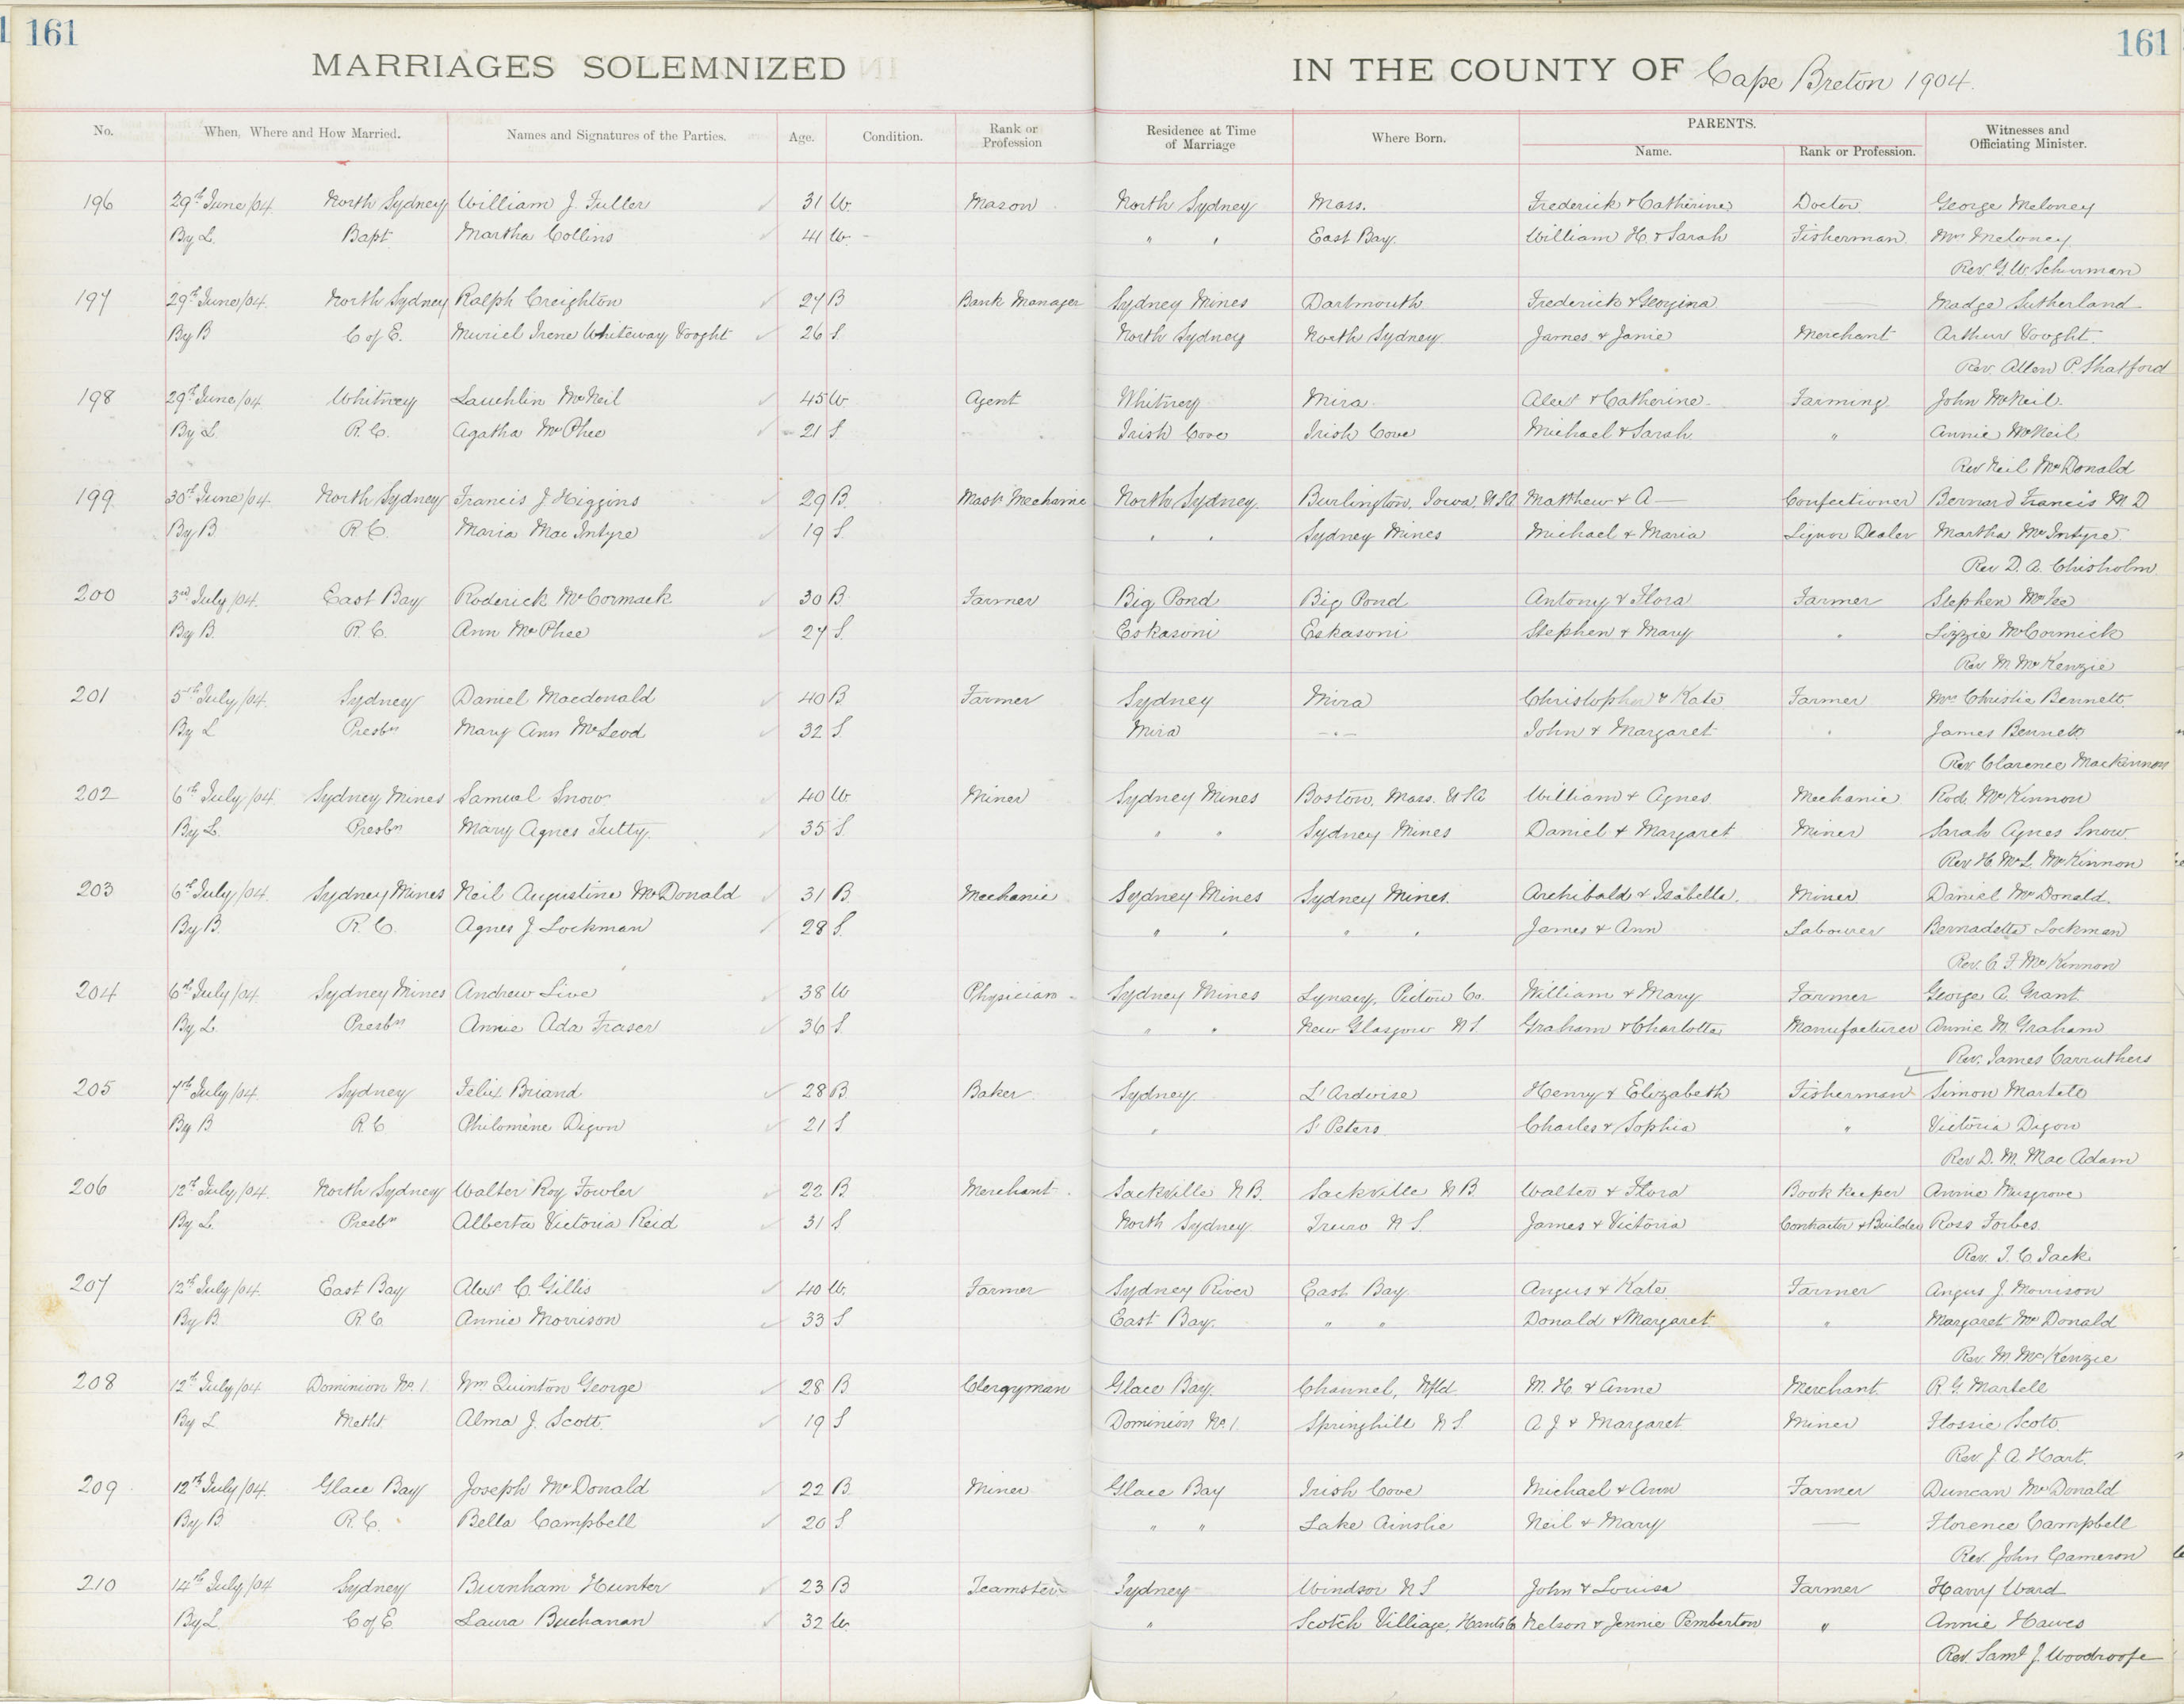 161
161
MARRIAGES SOLEMNIZED IN THE COUNTY OF Cape Breton 1904.
No. When, Where and How Married. Names and Signatures of the Parties. Age. Condition. Rank or Profession Residence at Time of Marriage Where Born. PARENTS. Name. Rank or Profession. Witnesses and Officiating Minister.
196 29th June/04 North Sydney William J. Fuller 31 W. Mason North Sydney Mass. Frederick & Catherine Doctor George Meloney
By L. Bapt. Martha Collins 41 W. " " East Bay. William H. & Sarah Fisherman Mrs Meloney
Rev G. W. Schurman
197 29th June/04 North Sydney Ralph Creighton 27 B Bank Manager Sydney Mines Dartmouth Frederick & Georgina — Madge Sutherland
By B C of E. Muriel Irene Whiteway Vooght 26 S. North Sydney North Sydney James & Janie Merchant Arthur Vooght.
Rev. Allen P. Shatford
198 29th June/04 Whitney Lauchlin McNeil 45 W Agent Whitney Mira Alexr & Catherine Farming John McNeil.
By L. R. C. Agatha McPhee 21 S Irish Cove Irish Cove Michael & Sarah " Annie McNeil
Rev Neil McDonald
199 30th June/04 North Sydney Francis J Higgins 29 B. Mast. Mechanic North Sydney Burlington, Iowa, U.S.A Matthew & A— Confectioner Bernard Francis M D
By B R. C. Maria MacIntyre 19 S. " " Sydney Mines Michael & Maria Liquor Dealer Martha McIntyre
Rev D. A. Chisholm
200 3rd July/04. East Bay Roderick McCormack 30 B. Farmer Big Pond Big Pond Antony & Flora Farmer Stephen McFee
By B. R. C. Ann McPhee 27 S. Eskasoni Eskasoni Stephen & Mary " Lizzie McCormick
Rev M McKenzie
201 5th July/04. Sydney Daniel Macdonald 40 B. Farmer Sydney Mira Christopher & Kate Farmer Mrs Christie Bennett.
By L Presbn Mary Ann McLeod 32 S. Mira — " — John & Margaret " James Bennett
Rev Clarence Mackinnon
202 6th July/04 Sydney Mines Samual Snow 40 W Miner Sydney Mines Boston, Mass. U S A William & Agnes Mechanic Rod. McKinnon
By L. Presbn Mary Agnes Tutty. 35 S. " " Sydney Mines Daniel & Margaret Miner Sarah Agnes Snow.
Rev H. McL. McKinnon
203 6th July/04. Sydney Mines Neil Augustine McDonald 31 B. Mechanic Sydney Mines Sydney Mines. Archibald & Isabella. Miner Daniel McDonald.
By B. R. C. Agnes J Lockman 28 S. " " " " James & Ann Labourer Bernadette Lockman
Rev. C. F. McKinnon
204 6th July/04 Sydney Mines Andrew Live 38 W Physician Sydney Mines Pictou Co. William & Mary Farmer George A. Grant
By L. Presbn Annie Ada Fraser 36 S. " " New Glasgow N S Graham & Charlotte Manufacturer Annie M. Graham
Rev. James Carruthers
205 7th July/04. Sydney Felix Briand 28 B. Baker Sydney L'Ardoise Henry & Elizabeth Fisherman Simon Martell
By B R C Philomène Digon 21 S " St Peters. Charles & Sophia " Victoria Digon
Rev D. M. MacAdam
206 12th July/04. North Sydney Walter Roy Fowler 22 B Merchant Sackville N B. Sackville N B. Walter & Flora Book Keeper Annie Musgrove
By L. Presbn Alberta Victoria Reid 31 S North Sydney Truro N S. James & Victoria Contractor & Builder Ross Forbes.
Rev. T. C. Jack
207 12th July/04 East Bay Alexr C. Gillis 40 W. Farmer Sydney River East Bay Angus & Kate Farmer Angus J. Morrison
By B. R. C. Annie Morrison 33 S East Bay. " " Donald & Margaret " Margaret McDonald
Rev. M. McKenzie
208 12th July/04 Dominion No. 1. Wm Quinton George 28 B Clergyman Glace Bay. Channel, Nfld M. H. & Anne Merchant R G. Martell
By L. Metht. Alma J. Scott. 19 S Dominion No 1. Springhill N S. A. J & Margaret Miner Flossie Scott
Rev. J. A. Hart.
209 12th July/04. Glace Bay Joseph McDonald 22 B. Miner Glace Bay Irish Cove Michael & Ann Farmer Duncan McDonald
By B R. C. Bella Campbell 20 S " " Lake Ainslie Neil & Mary — Florence Campbell
Rev. John Cameron
210 14th July/04 Sydney Burnham Hunter 23 B Teamster Sydney Windsor N S John & Louisa Farmer Harry Ward
By L. C of E Laura Buchanan 32 W " Scotch Villiage, Hants Co Nelson & Jennie Pemberton " Annie Hawes
Rev. Saml J. Woodroofe